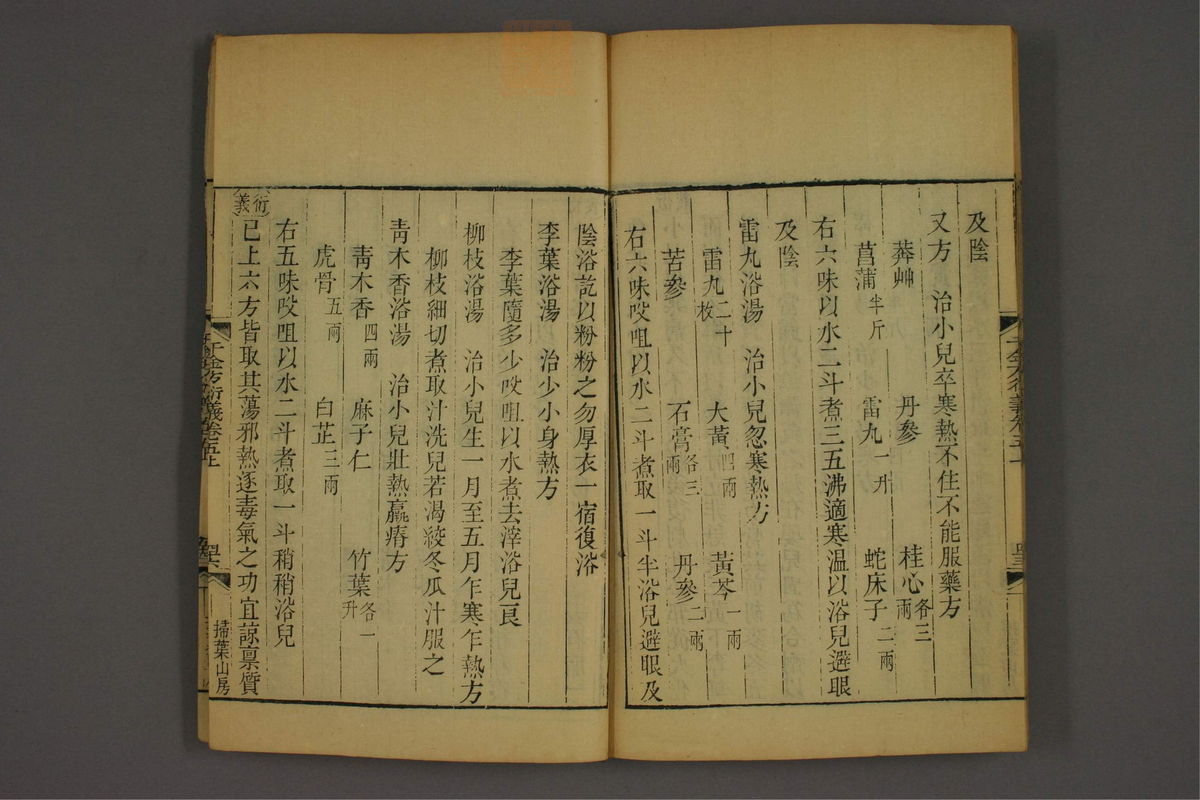 及陰
又方　治小兒卒寒熱不住不能服藥方
莽艸　丹參　桂心各三兩
菖蒲半斤　雷丸一升　蛇床子二兩
右六味以水二斗煮三五沸適寒温以浴兒避眼
及陰
雷丸浴湯　治小兒忽寒熱方
雷丸二十枚　大黃四兩　黃芩一兩
苦參　石膏各三兩　丹參二兩
右六味㕮咀以水二斗煮取一斗半浴兒避眼及
陰浴訖以粉粉之勿厚衣一宿復浴
李葉浴湯　治少小身熱方
李葉隨多少㕮咀以水煮去滓浴兒良
柳枝浴湯　治小兒生一月至五月乍寒乍熱方
柳枝細切煮取汁洗兒若渴絞冬瓜汁服之
青木香浴湯　治小兒壯熱羸瘠方
青木香四兩　麻子仁　竹葉各一升
虎骨五兩　白芷三兩
右五味㕮咀以水二斗煮取一斗稍稍浴兒
衍義
已上六方皆取其蕩邪熱逐毒氣之功宜諒禀質
千金方衍義卷五上
掃葉山房